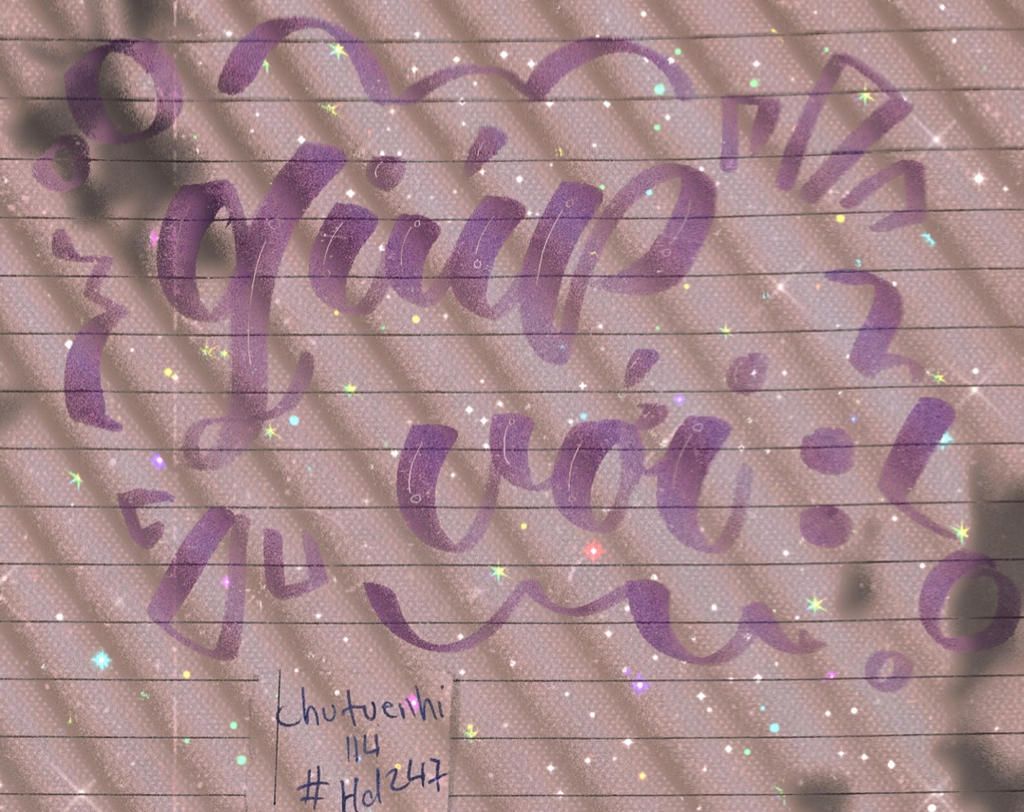 giúp
với :
chutuenhi
114
#Hd247